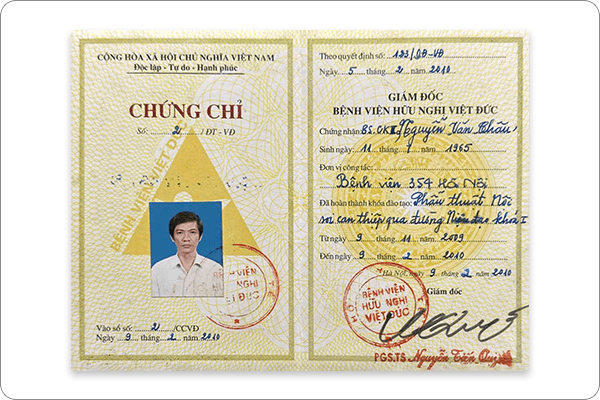 CỘNG HÒA XÃ HỘI CHỦ NGHĨA VIỆT NAM
Độc lập - Tự do - Hạnh phúc
CHỨNG CHỈ
Số: 2 / ĐT - VĐ
BỆNH VIỆN VIỆT ĐỨC
BỆNH VIỆN
HỮU NGHỊ
VIỆT ĐỨC
Vào sổ số: 2 /CCVĐ
Ngày 9 tháng 2 năm 2010
Theo quyết định số: 123/QĐ-VĐ
Ngày 5 tháng 2 năm 2010
GIÁM ĐỐC
BỆNH VIỆN HỮU NGHỊ VIỆT ĐỨC
Chứng nhận: BS.CKII Nguyễn Văn Châu
Sinh ngày: 11 tháng 1 năm 1965
Đơn vị công tác:
Bệnh viện 354 Hà Nội
Đã hoàn thành khóa đào tạo: Phẫu thuật Nội
soi can thiệp qua đường Niệu đạo khóa I
Từ ngày 9 tháng 11 năm 2009
Đến ngày 9 tháng 2 năm 2010
Hà Nội, ngày 9 tháng 2 năm 2010
Giám đốc
BỆNH VIỆN
HỮU NGHỊ
VIỆT ĐỨC
PGS.TS Nguyễn Tiến